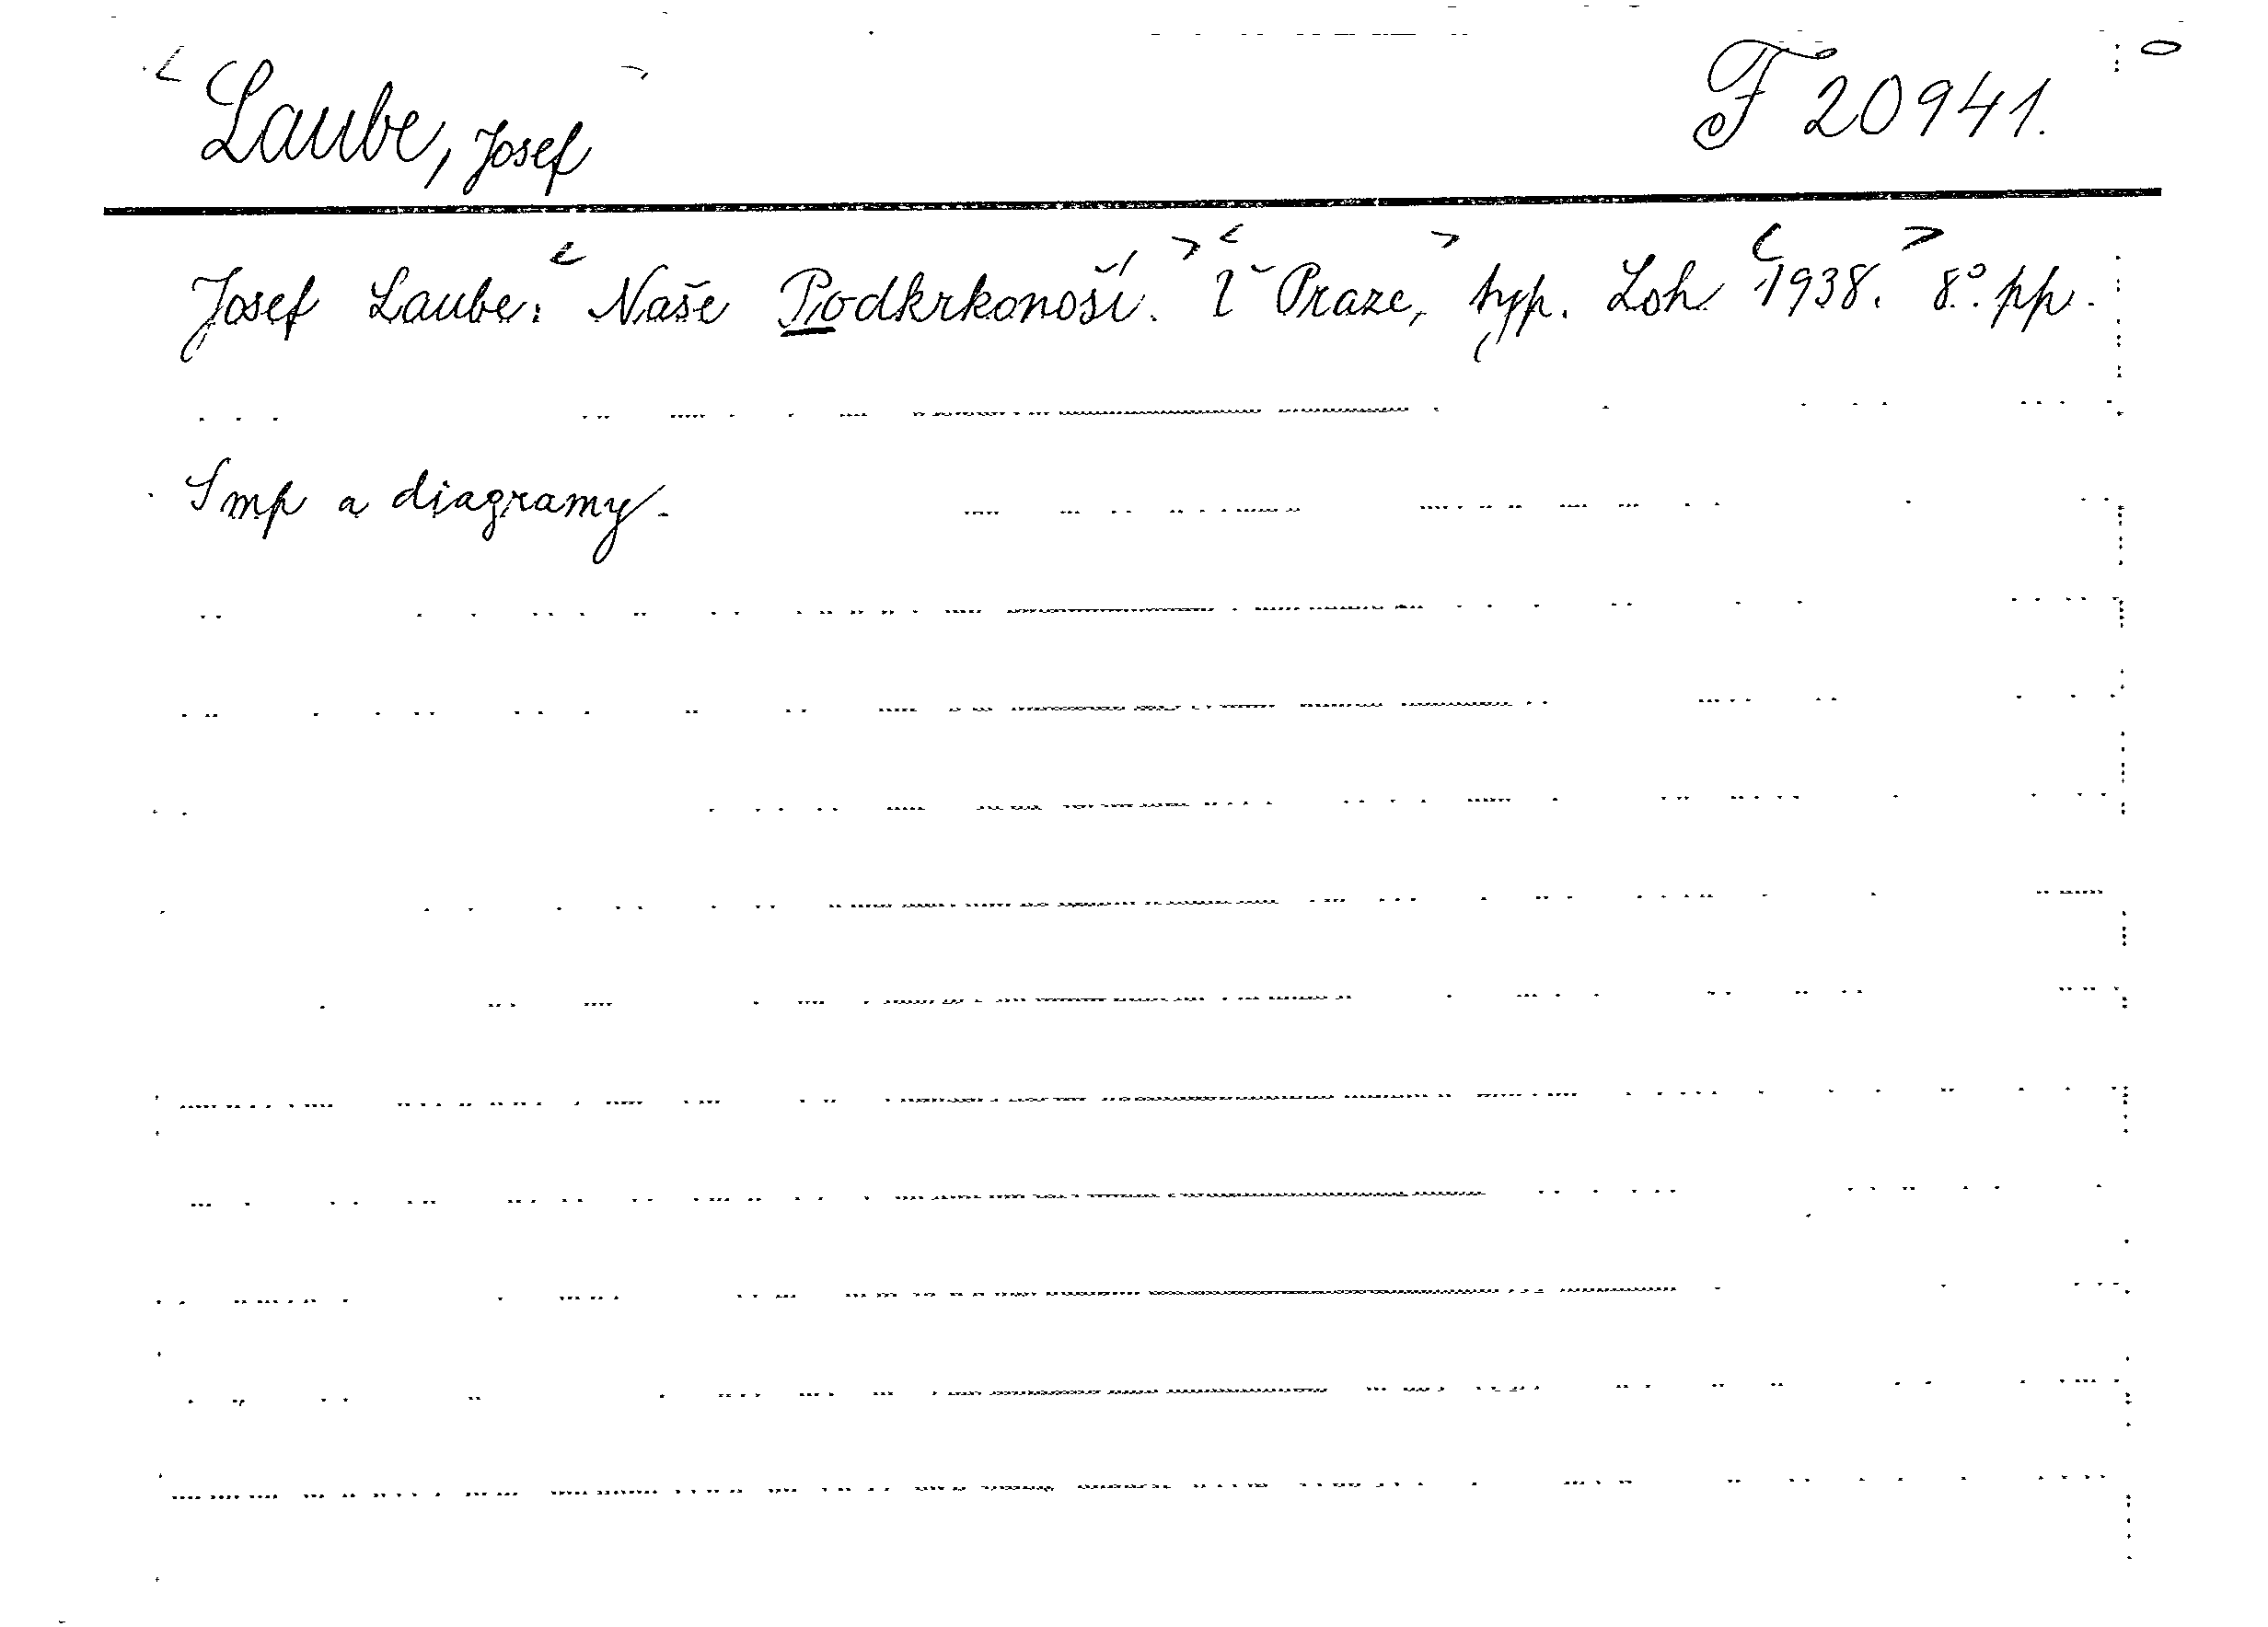 Laube, Josef
F 20941.
Josef Laube: Naše Podkrkonoší. V Praze, typ. Loh 1938. 8.° pp.
Smp a diagramy.